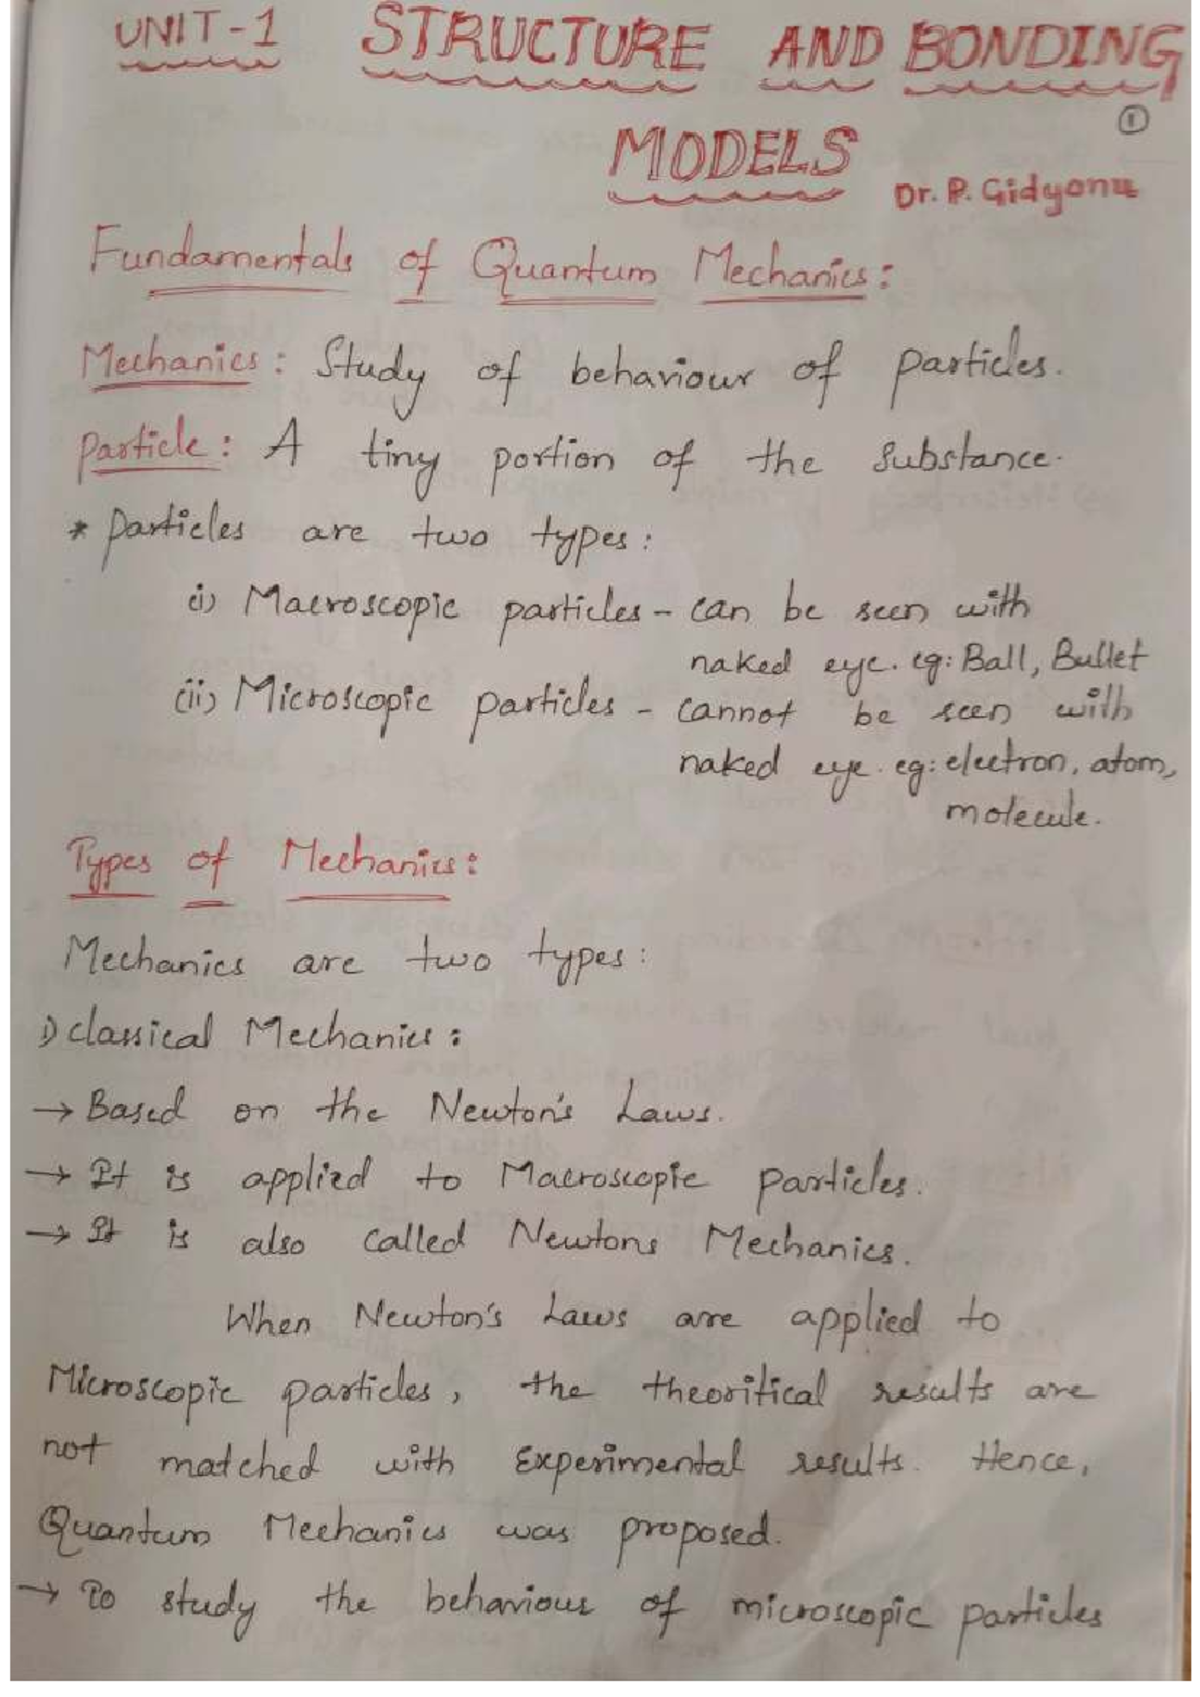 UNIT-1 STRUCTURE AND BONDING
①
MODELS
Dr. P. Gidyonu
Fundamentals of Quantum Mechanics:
Mechanics: Study of behaviour of particles.
Particle: A tiny portion of the substance.
* Particles are two types:
(i) Macroscopic particles - can be seen with
naked eye. eg: Ball, Bullet
(ii) Microscopic particles - cannot be seen with
naked eye. eg: electron, atom,
molecule.
Types of Mechanics:
Mechanics are two types:
i) Classical Mechanics:
→ Based on the Newton's Laws.
→ It is applied to Macroscopic particles.
→ It is also called Newtons Mechanics.
When Newton's Laws are applied to
Microscopic particles, the theoritical results are
not matched with Experimental results. Hence,
Quantum Mechanics was proposed.
→ To study the behaviour of microscopic particles